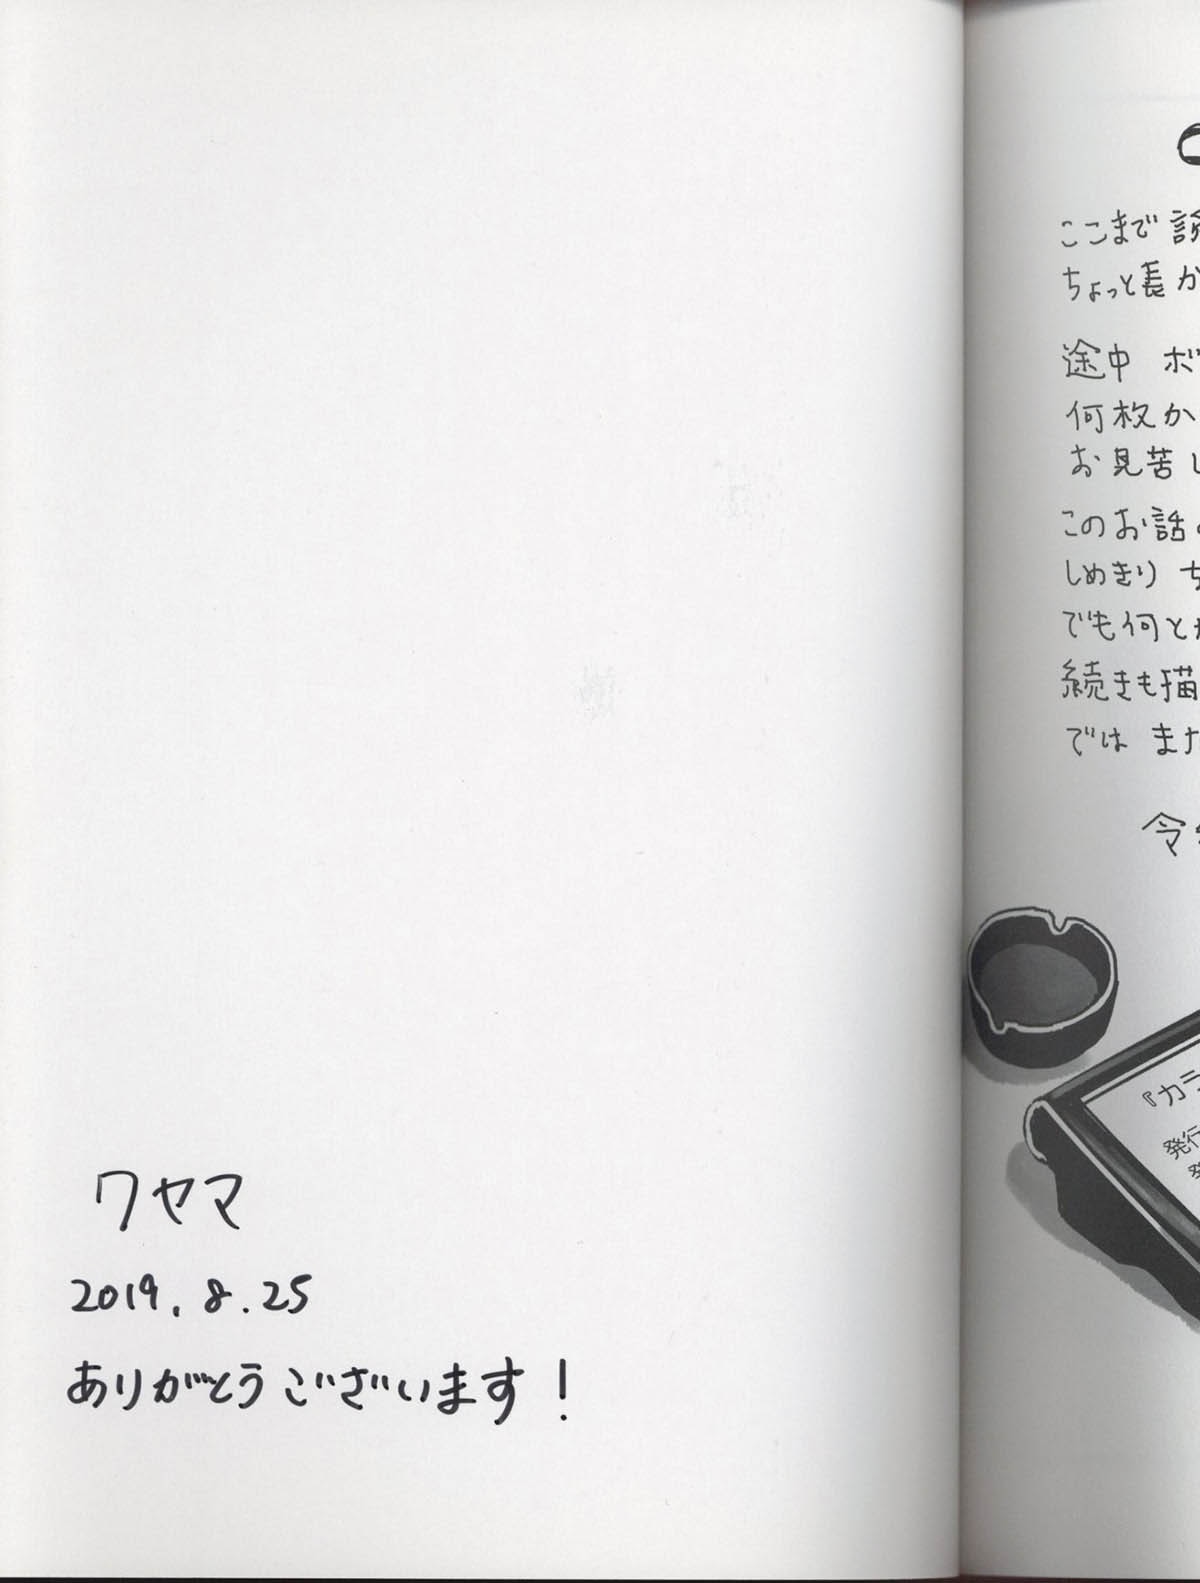 ワヤマ
2019.8.25
ありがとうございます!
ここまで読
ちょっと長か
途中 ボ
何枚か
お見苦し
このお話の
しめきり ち
でも何とか
続きも描
では また
令
『カラ
発行
発